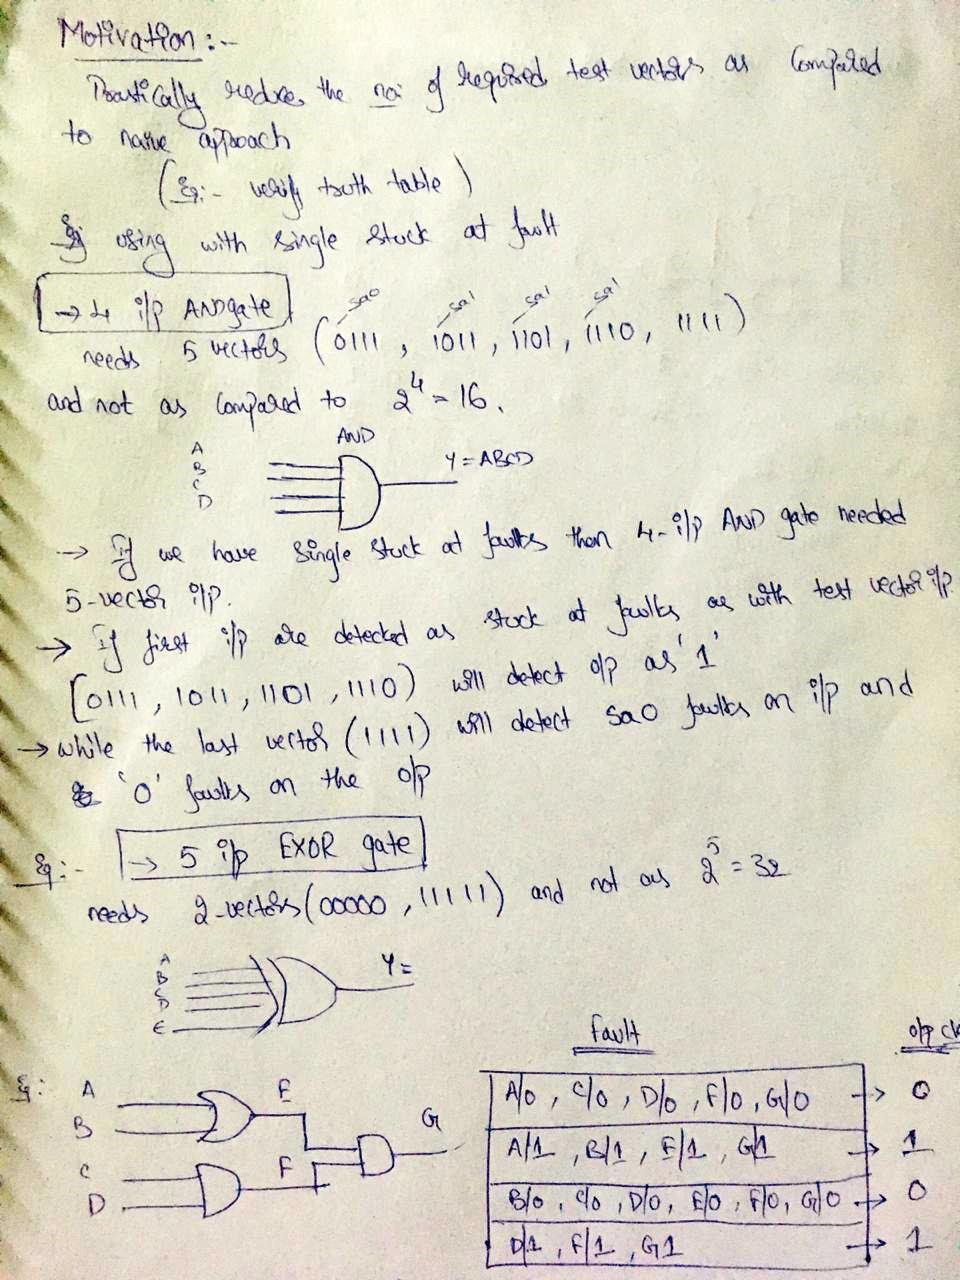 Motivation :-
Drastically reduces the no: of required test vectors as compared
to naive approach
(Eg:- verify truth table)
Eg using with single stuck at fault
→ 4 i/p AND gate
sa0 sa1 sa1 sa1
needs 5 vectors (0111, 1011, 1101, 1110, 1111)
and not as compared to 2⁴ = 16.
AND
A
B
C
D
Y = ABCD
→ If we have single stuck at faults then 4-i/p AND gate needed
5-vector i/p.
→ If first i/p are detected as stuck at faults as with test vector i/p
[0111, 1011, 1101, 1110) will detect o/p as '1'
→ while the last vector (1111) will detect sa0 faults on i/p and
'0' faults on the o/p
Eg:- → 5 i/p EXOR gate
needs 2-vectors (00000, 11111) and not as 2⁵ = 32
A
B
C
D
E
Y =
Fault o/p ck
Eg:
A
B
C
D
E
F
G
A/0, C/0, D/0, F/0, G/0 → 0
A/1, B/1, E/1, G/1 → 1
B/0, C/0, D/0, E/0, F/0, G/0 → 0
D/1, F/1, G1 → 1